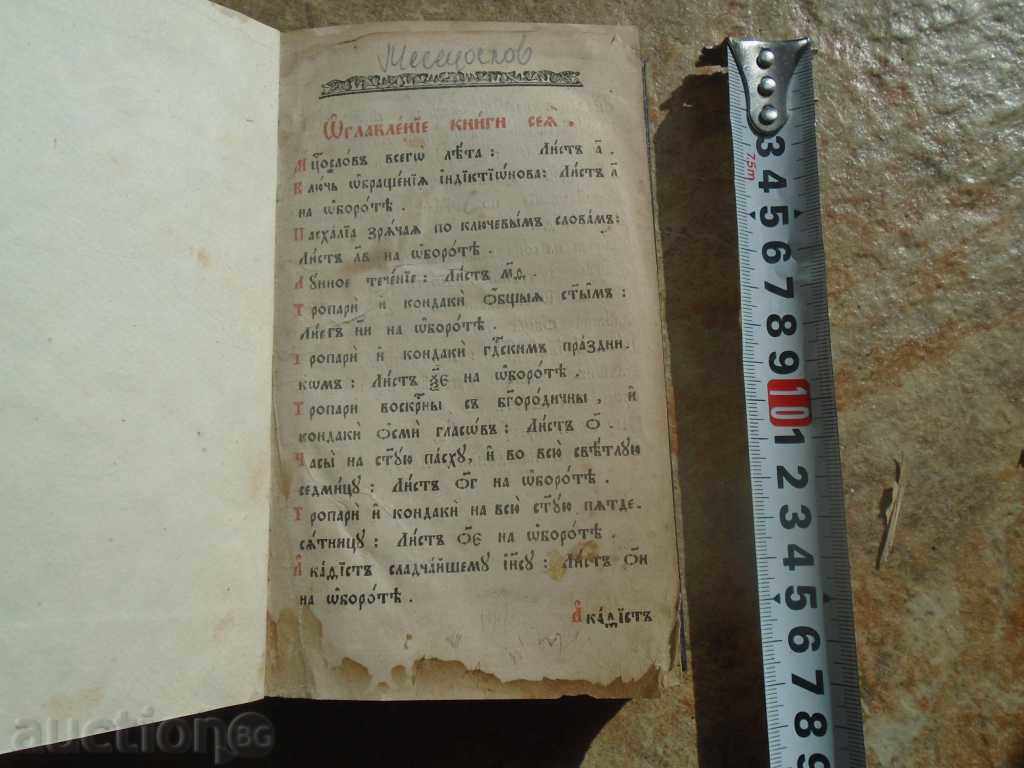 Месецослов
Ѡглавле́нїе кни́ги сеѧ̀ .
Мц҃осло́въ всегѡ̀ лѣ́та : Ли́стъ а҃ .
Ключь ѡ҆браще́нїѧ і҆ндїктїѡ́нова : Ли́стъ л҃
на ѡ҆боро́тѣ .
Пасха́лїа зрѧ́чаѧ по ключевы́мъ слова́мъ :
Ли́стъ л҃в на ѡ҆боро́тѣ .
Лꙋ́нное тече́нїе : Ли́стъ
Тропарѝ и҆ кондакѝ ѻ҆́бщыѧ ст҃ы̑мъ :
Ли́стъ н҃и на ѡ҆боро́тѣ .
Тропарѝ и҆ кондакѝ гдⷭ҇кимъ пра́здни-
кѡмъ : Ли́стъ ѯ҃є на ѡ҆боро́тѣ .
Тропарѝ воскрⷭ҇ны съ бг҃оро́дичны , и҆
кондакѝ ѻ҆смѝ гласѡ́въ : Ли́стъ ѻ҃ .
Часы̀ на ст҃ꙋ́ю па́схꙋ , и҆ во всю̀ свѣ́тлꙋю
седми́цꙋ : Ли́стъ ѻ҃г на ѡ҆боро́тѣ .
Тропарѝ и҆ кондакѝ на всю̀ ст҃ꙋ́ю пѧтде-
сѧ́тницꙋ : Ли́стъ ѻ҃є на ѡ҆боро́тѣ .
А҆ка́ѳїстъ сладча́йшемꙋ і҆и҃сꙋ : Ли́стъ ѻ҃и
на ѡ҆боро́тѣ .
А҆ка́ѳїстъ
75m
3 4 5 6 7 8 9 10 1 2 3 4 5 6 7 8 9
auction BG